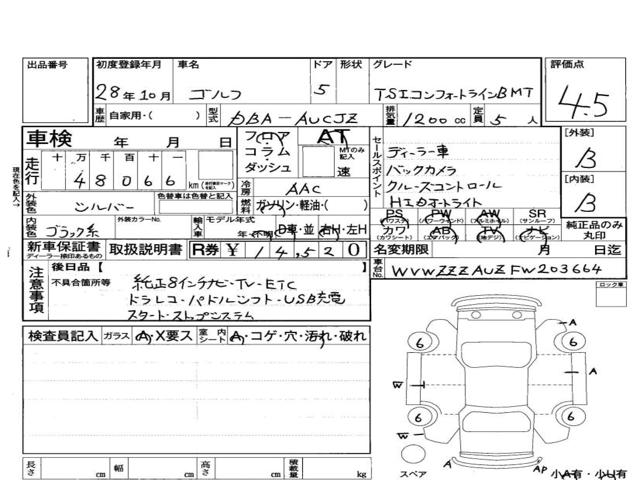 出品番号 初度登録年月 車名 ドア 形状 グレード 評価点
28年10月 ゴルフ 5 TSIコンフォートラインBMT 4.5
車歴 自家用・( ) 型式 DBA-AUCJZ 排気量 1200 cc 定員 5 人
車検 年 月 日 フロア コラム ダッシュ AT MTのみ記入 速
走行 十 万 千 百 十 一
48066 km
冷房 AAC
外装色 シルバー 色替車は色替と記入 燃料 ガソリン・軽油・( )
内装色 ブラック系 外装カラーNo. 輸入車 モデル年式
年・不明 D車・並 右H・左H
新車保証書 取扱説明書 R券 ¥ 14,520
ディーラー捺印あるもの
セールスポイント
ディーラー車
バックカメラ
クルーズコントロール
HIDオートライト
PS PW AW SR
(パワステ) (パワーウインド) (アルミホイル) (サンルーフ)
カワ AB TV ナビ
(カワシート) (エアバック) (地デジ) (ナビゲーション)
[外装]
B
[内装]
B
純正品のみ
丸印
名変期限 月 日迄
車台No. WVWZZZAUZFW203664
現状色を記入→
注意事項
後日品【 】
不具合箇所等
純正8インチナビ・TV・ETC
ドラレコ・パドルシフト・USB充電
スタート・ストップシステム
ロック車
検査員記入 ガラス A・X要ス 室内シート A・コゲ・穴・汚れ・破れ
6 6 6 6
A
A
W
W
A
AP
スペア
小A有・小U有
長さ cm 幅 cm 高さ cm 積載量 kg